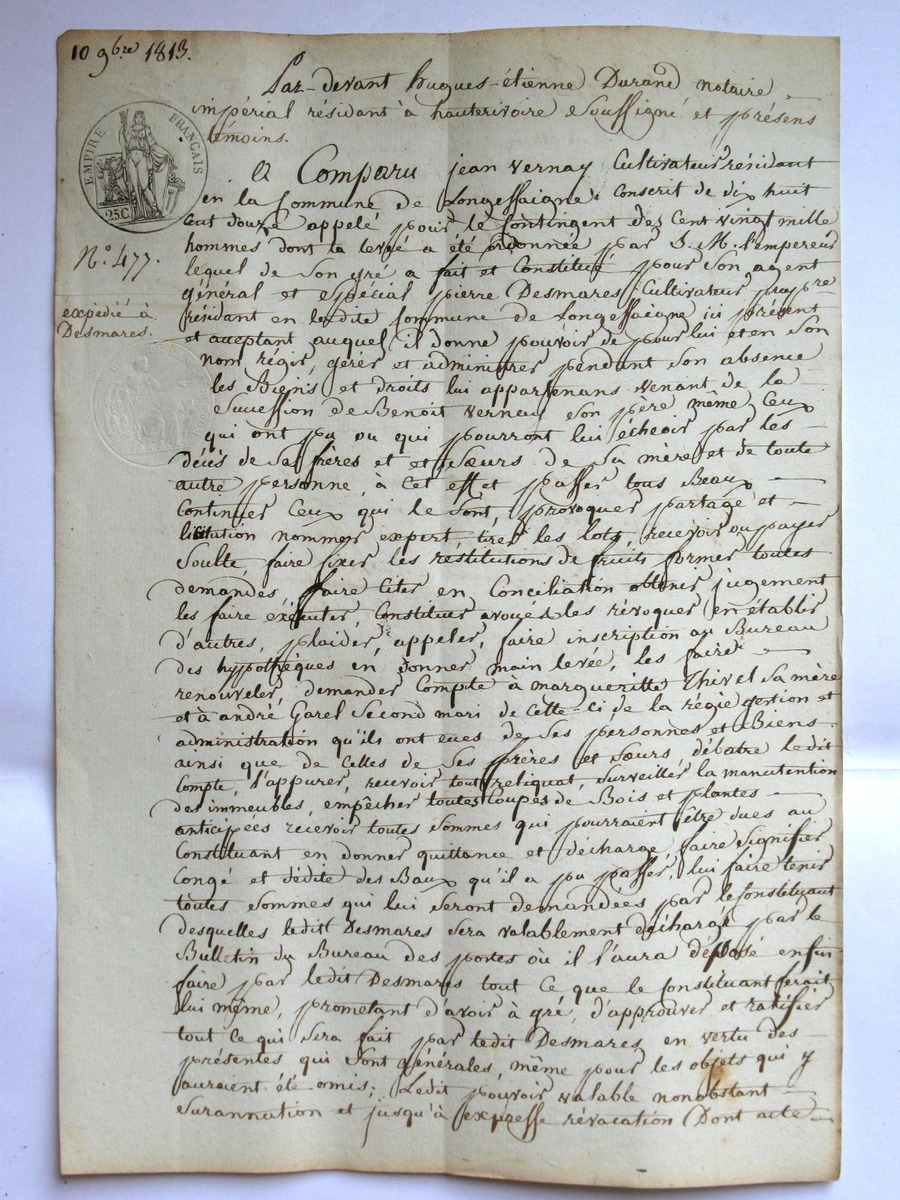 10 9bre 1813.
Par-devant hugues-étienne Durand notaire
impérial résidant à hauterivoire Soussigné et présens
témoins.
EMPIRE FRANÇAIS
25C.
A Comparu jean vernay Cultivateur résidant
en la Commune de Longessaigne, Conscrit de dix huit
Cent douze appelé pour le Contingent des Cent vingt mille
hommes dont la levée a été ordonnée par S. M. l'empereur
N.º 477.
lequel de Son gré a fait et Constitué pour Son agent
général et Spécial pierre Desmares Cultivateur propre
expédié à
Desmares.
résidant en ledite Commune de Longessaigne ici présent
et aceptant auquel il donne pouvoir de pour lui et en Son
nom régir, gérer et administrer pendant Son absence
les Biens et droits lui appartenans venant de la
Sucession de Benoit Vernay Son père même Ceux
qui ont pu ou qui pourront lui échéoir par les
décès de Ses frères et et Sœurs de Sa mère et de toute
autre personne, à Cet effet passer tous Beaux
Continuer Ceux qui le Sont, provoquer partage et
licitation nommer expert tirer les lots, recevoir ou payer
Soulte, faire fixer les réstitutions de fruits former toutes
demandes faire Citer en Conciliation obtenir jugement
les faire éxécuter, Constituer avoués les révoquer en établir
d'autres, plaider, appeler, faire inscription au Bureau
des hypothèques en donner main levée, les faire
renouveler, demander Compte à margueritte Thivel Sa mère
et à andré Garel Second mari de Celle-ci, de la régie gestion et
administration qu'ils ont eues de Ses personnes et Biens
ainsi que de Celles de Ses frères et Sœurs débatre ledit
Compte, l'appurer, recevoir tout reliquat, Surveiller la manutention
des immeubles, empêcher toutes Coupes de Bois et plantes
anticipées récevoir toutes Sommes qui pourraient être dues au
Constituant en donner quittance et décharge faire Signifier
Congé et dédite des Baux qu'il a pu passer, lui faire tenir
toutes Sommes qui lui Seront demandées par le Constituant
desquelles ledit Desmares Sera valablement déchargé par le
Bulletin du Bureau des postes où il l'aura déposé enfin
faire par ledit Desmares tout Ce que le Constituant ferait
lui même, prometant d'avoir à gré, d'approuver et ratifier
tout ce qui Sera fait par ledit Desmares en vertu des
présentes qui Sont générales, même pour les objets qui y
auraient été omis; Ledit pouvoir valable nonobstant
Surannation et jusqu'à expresse révocation Dont acte